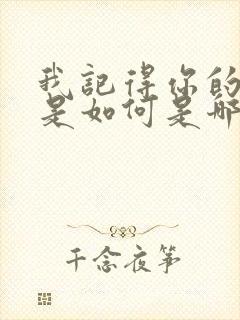 我記得你的
是如何是那
千念夜筝